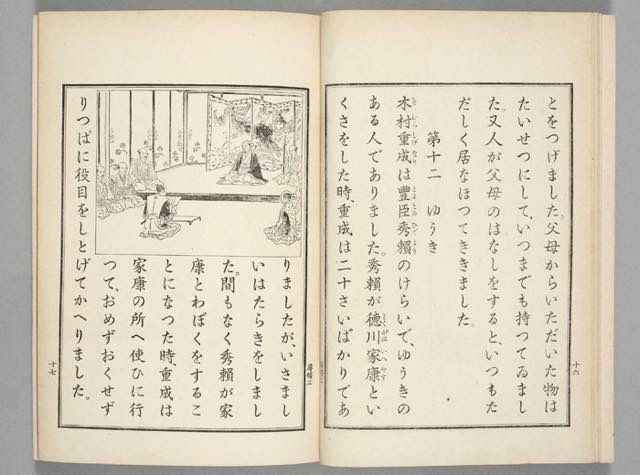 とをつげました。父母からいただいた物は
たいせつにして、いつまでも持つてゐまし
た。又人が父母のはなしをすると、いつもた
だしく居なほつてききました。
第十二 ゆうき
木村重成は豊臣秀頼のけらいで、ゆうきの
ある人でありました。秀頼が徳川家康とい
くさをした時、重成は二十さいばかりであ
十六
尋修三
りましたが、いさまし
いはたらきをしまし
た。間もなく秀頼が家
康とわぼくをするこ
とになつた時、重成は
家康の所へ使ひに行
つて、おめずおくせず
りつぱに役目をしとげてかへりました。
十七